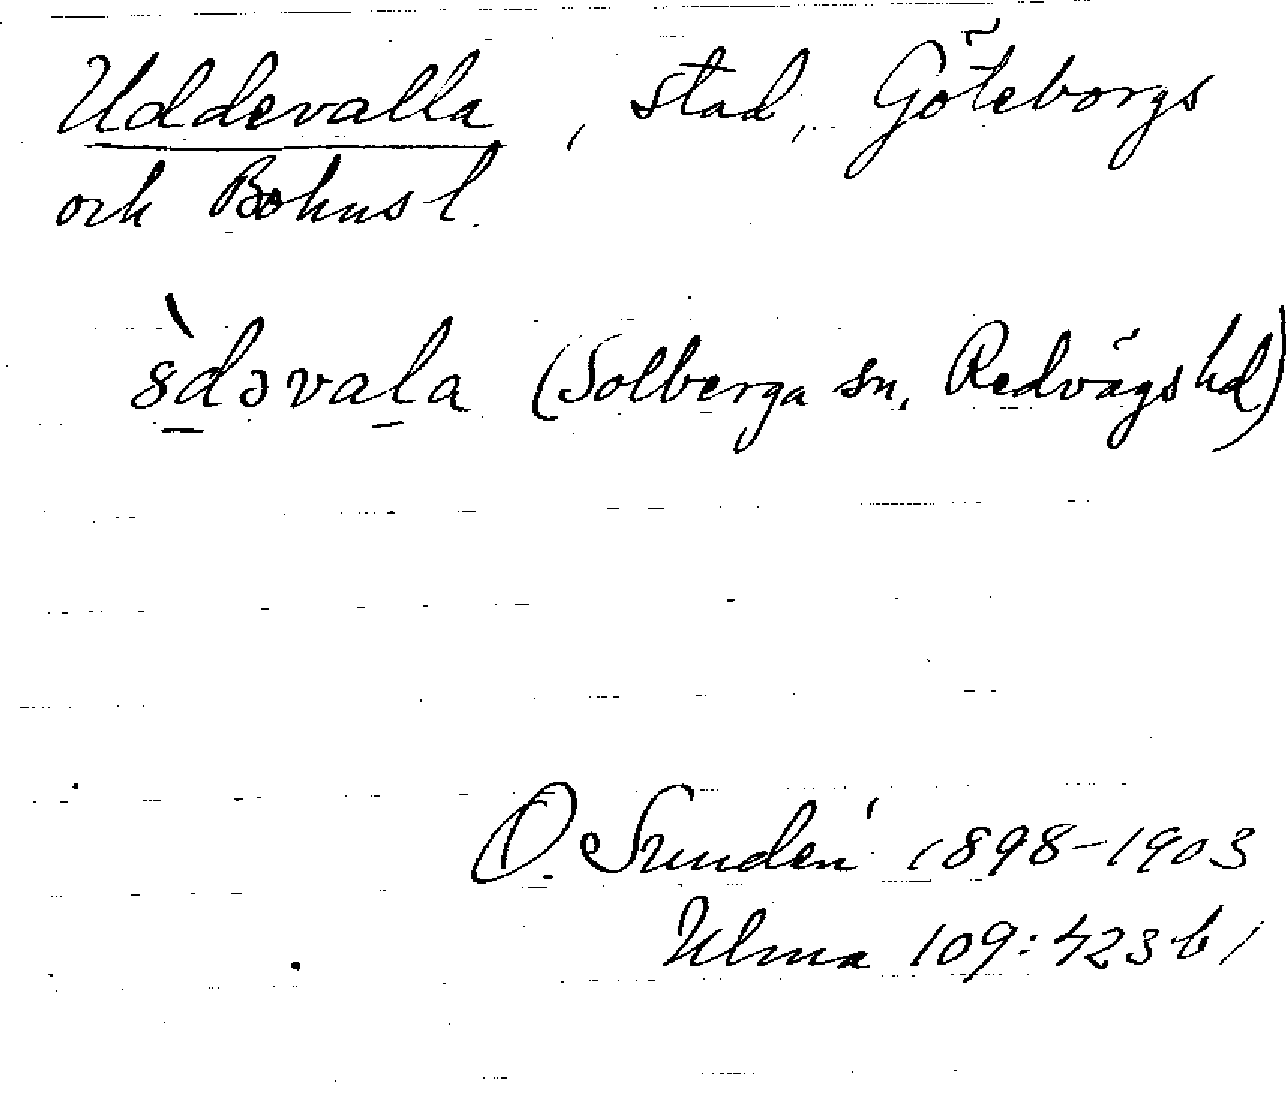 Uddevalla, stad, Göteborgs
och Bohusl.
8̀d̲əval̲a (Solberga sn, Redvägs hd)
O. Sundén 1898-1903
Ulma 109:423 b 1